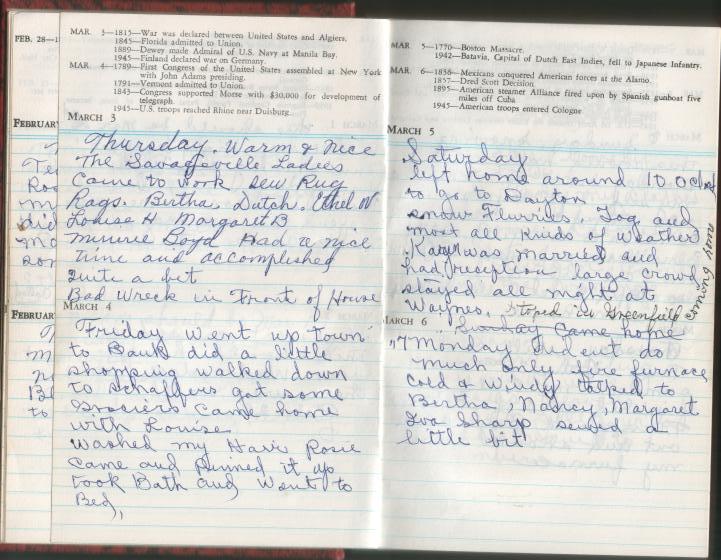 FEB. 28—1
FEBRUAR
FEBRUAR
MAR. 3—1815—War was declared between United States and Algiers.
1845—Florida admitted to Union.
1889—Dewey made Admiral of U.S. Navy at Manila Bay.
1945—Finland declared war on Germany.
MAR. 4—1789—First Congress of the United States assembled at New York
with John Adams presiding.
1791—Vermont admitted to Union.
1843—Congress supported Morse with $30,000 for development of
telegraph.
1945—U.S. troops reached Rhine near Duisburg.
MARCH 3
Thursday. Warm & nice
The Savageville Ladies
Came to work sew Rug
Rags. Birtha Dutch. Ethel W
Louise H Margaret B
Minnie Boyd Had a nice
time and accomplished
quite a bit
Bad wreck in Front of House
MARCH 4
Friday went up town
to Bank did a little
shopping walked down
to Schaffers got some
Grociers came home
with Louise
washed my Hair Rosie
came and pinned it up
took Bath and went to
Bed,
MAR. 5—1770—Boston Massacre.
1942—Batavia, Capital of Dutch East Indies, fell to Japanese Infantry.
MAR. 6—1836—Mexicans conquered American forces at the Alamo.
1857—Dred Scott Decision.
1895—American steamer Alliance fired upon by Spanish gunboat five
miles off Cuba
1945—American troops entered Cologne
MARCH 5
Saturday
left home around 10 oclock
to go to Dayton
snow Flurries. Fog and
most all kinds of weather
Kay was married and
had reception large crowd
stayed all night at
Waynes. stoped in Greenfield
coming hom
MARCH 6
Sunday Came home
7 Monday did ent do
much only fire furnace
cold & windy talked to
Birtha, Nancy, Margaret
Iva Sharp sewed a
little bit